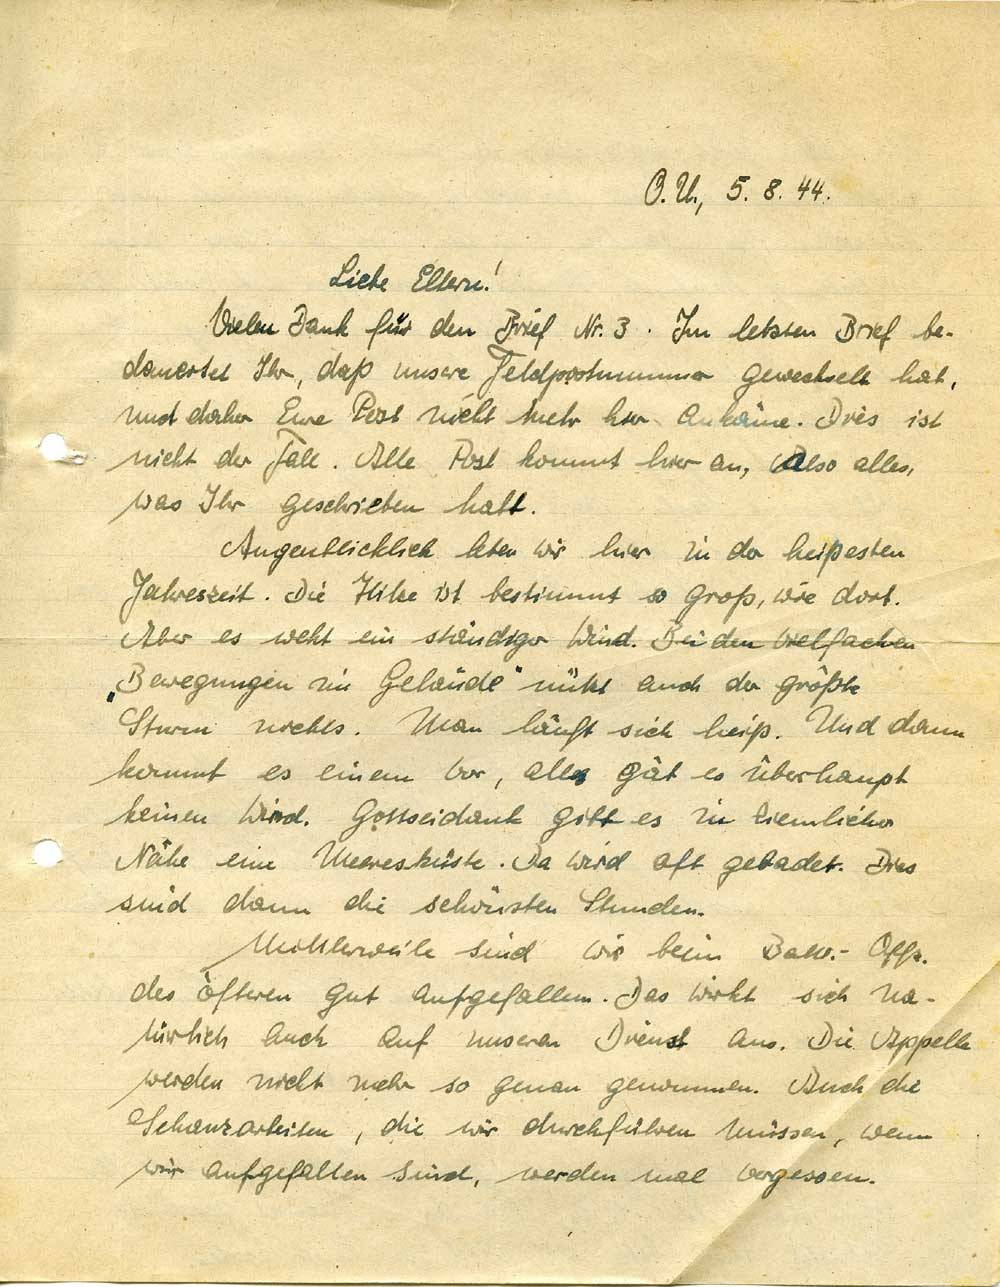 O.U., 5. 8. 44.
Liebe Eltern!
Vielen Dank für den Brief Nr. 3. Im letzten Brief be-
dauertet Ihr, daß unsere Feldpostnummer gewechselt hat,
und daher Eure Post nicht mehr hier ankäme. Dies ist
nicht der Fall. Alle Post kommt hier an, also alles,
was Ihr geschrieben habt.
Augenblicklich leben wir hier in der heißesten
Jahreszeit. Die Hitze ist bestimmt so groß, wie dort.
Aber es weht ein ständiger Wind. Bei den vielfachen
„Bewegungen im Gelände" nützt auch der größte
Sturm nichts. Man läuft sich heiß. Und dann
kommt es einem vor, als gät es überhaupt
keinen Wind. Gottseidank gibt es in ziemlicher
Nähe eine Meeresküste. Da wird oft gebadet. Dies
sind dann die schönsten Stunden.
Mittlerweile sind wir beim Battr.- Offz.
des öfteren gut aufgefallen. Das wirkt sich na-
türlich auch auf unseren Dienst aus. Die Appelle
werden nicht mehr so genau genommen. Auch die
Schanzarbeiten, die wir durchführen müssen, wenn
wir aufgefallen sind, werden mal vergessen.